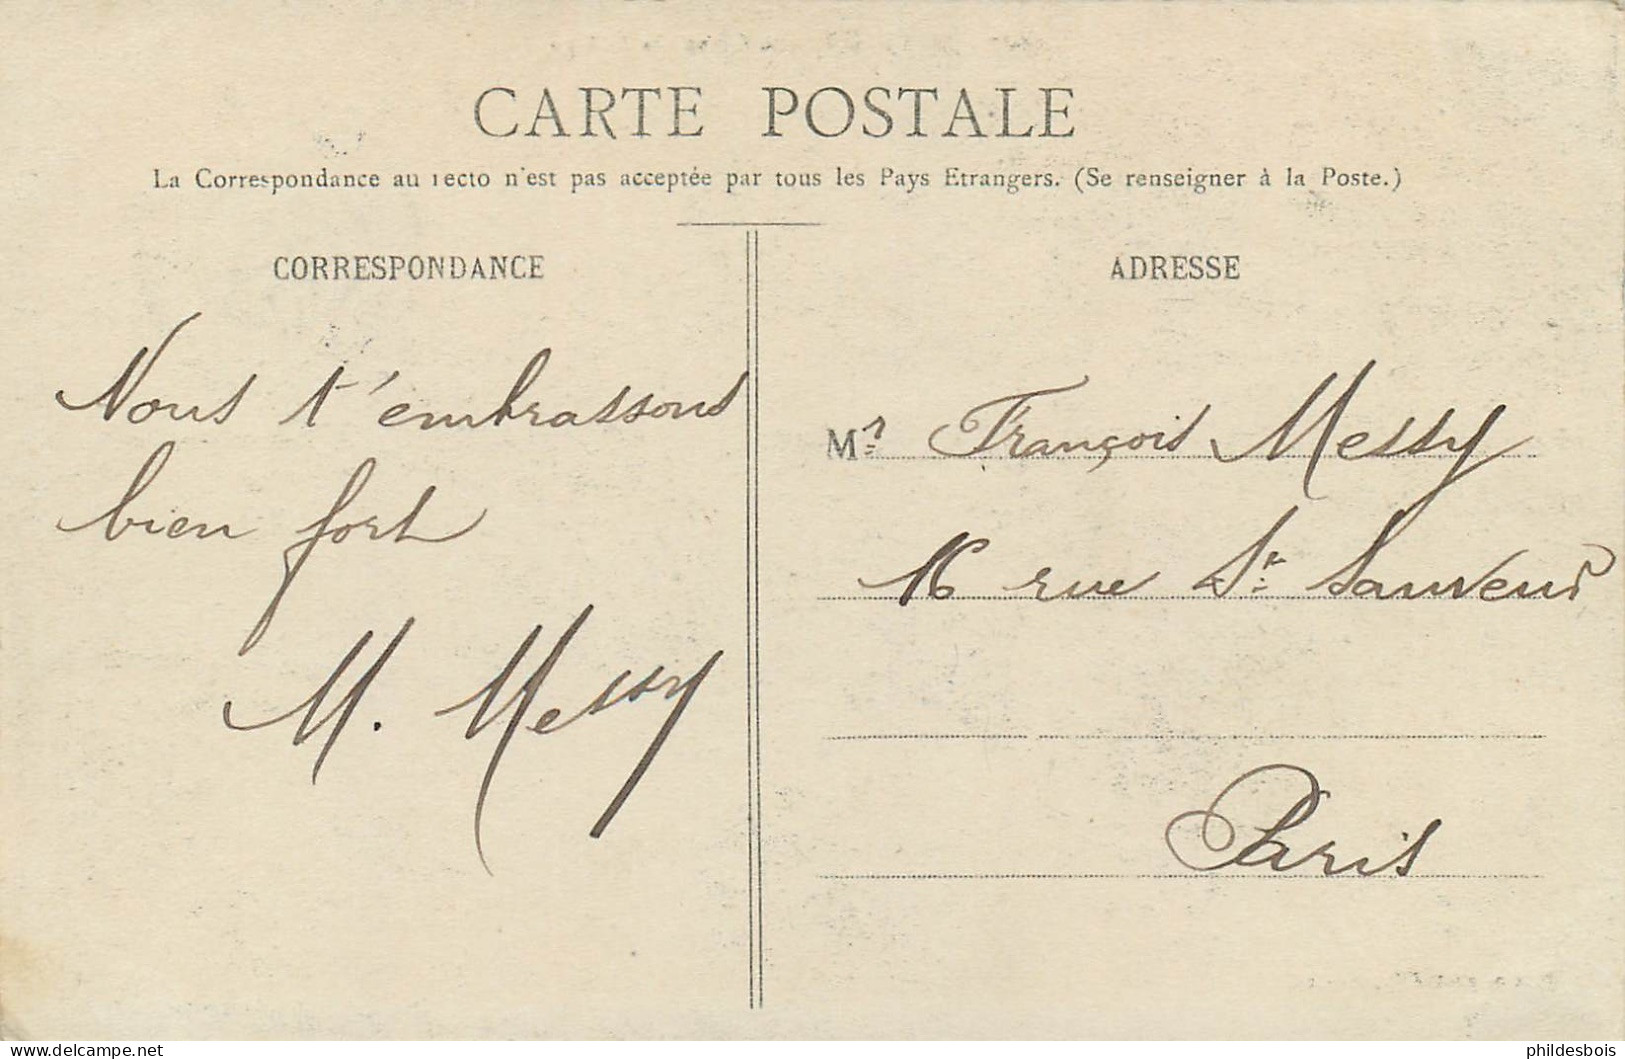 CARTE POSTALE
La Correspondance au recto n'est pas acceptée par tous les Pays Etrangers. (Se renseigner à la Poste.)
CORRESPONDANCE
Nous t'embrassons
bien fort
M. Messy
ADRESSE
Mr François Messy
16 rue St Sauveur
Paris
www.delcampe.net
phildesbois